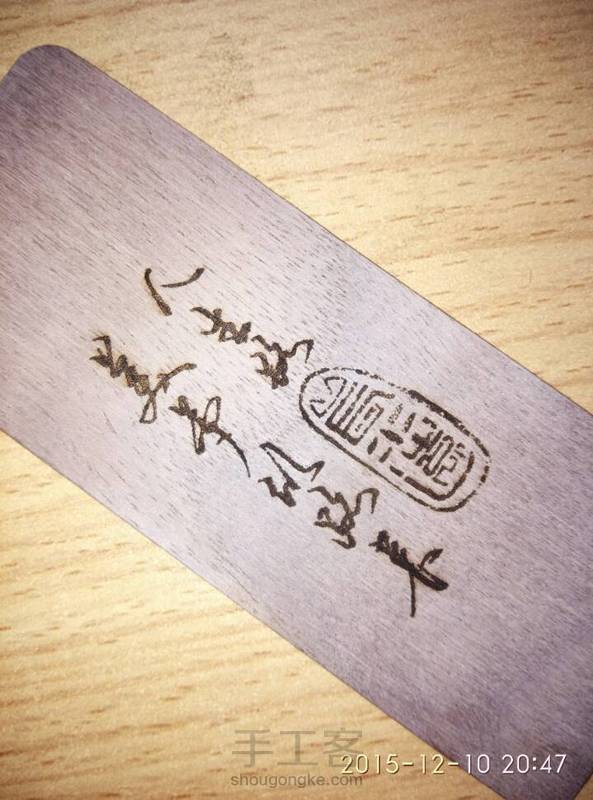 人生路
美梦似路长
手工客
shougongke.com
2015-12-10 20:47